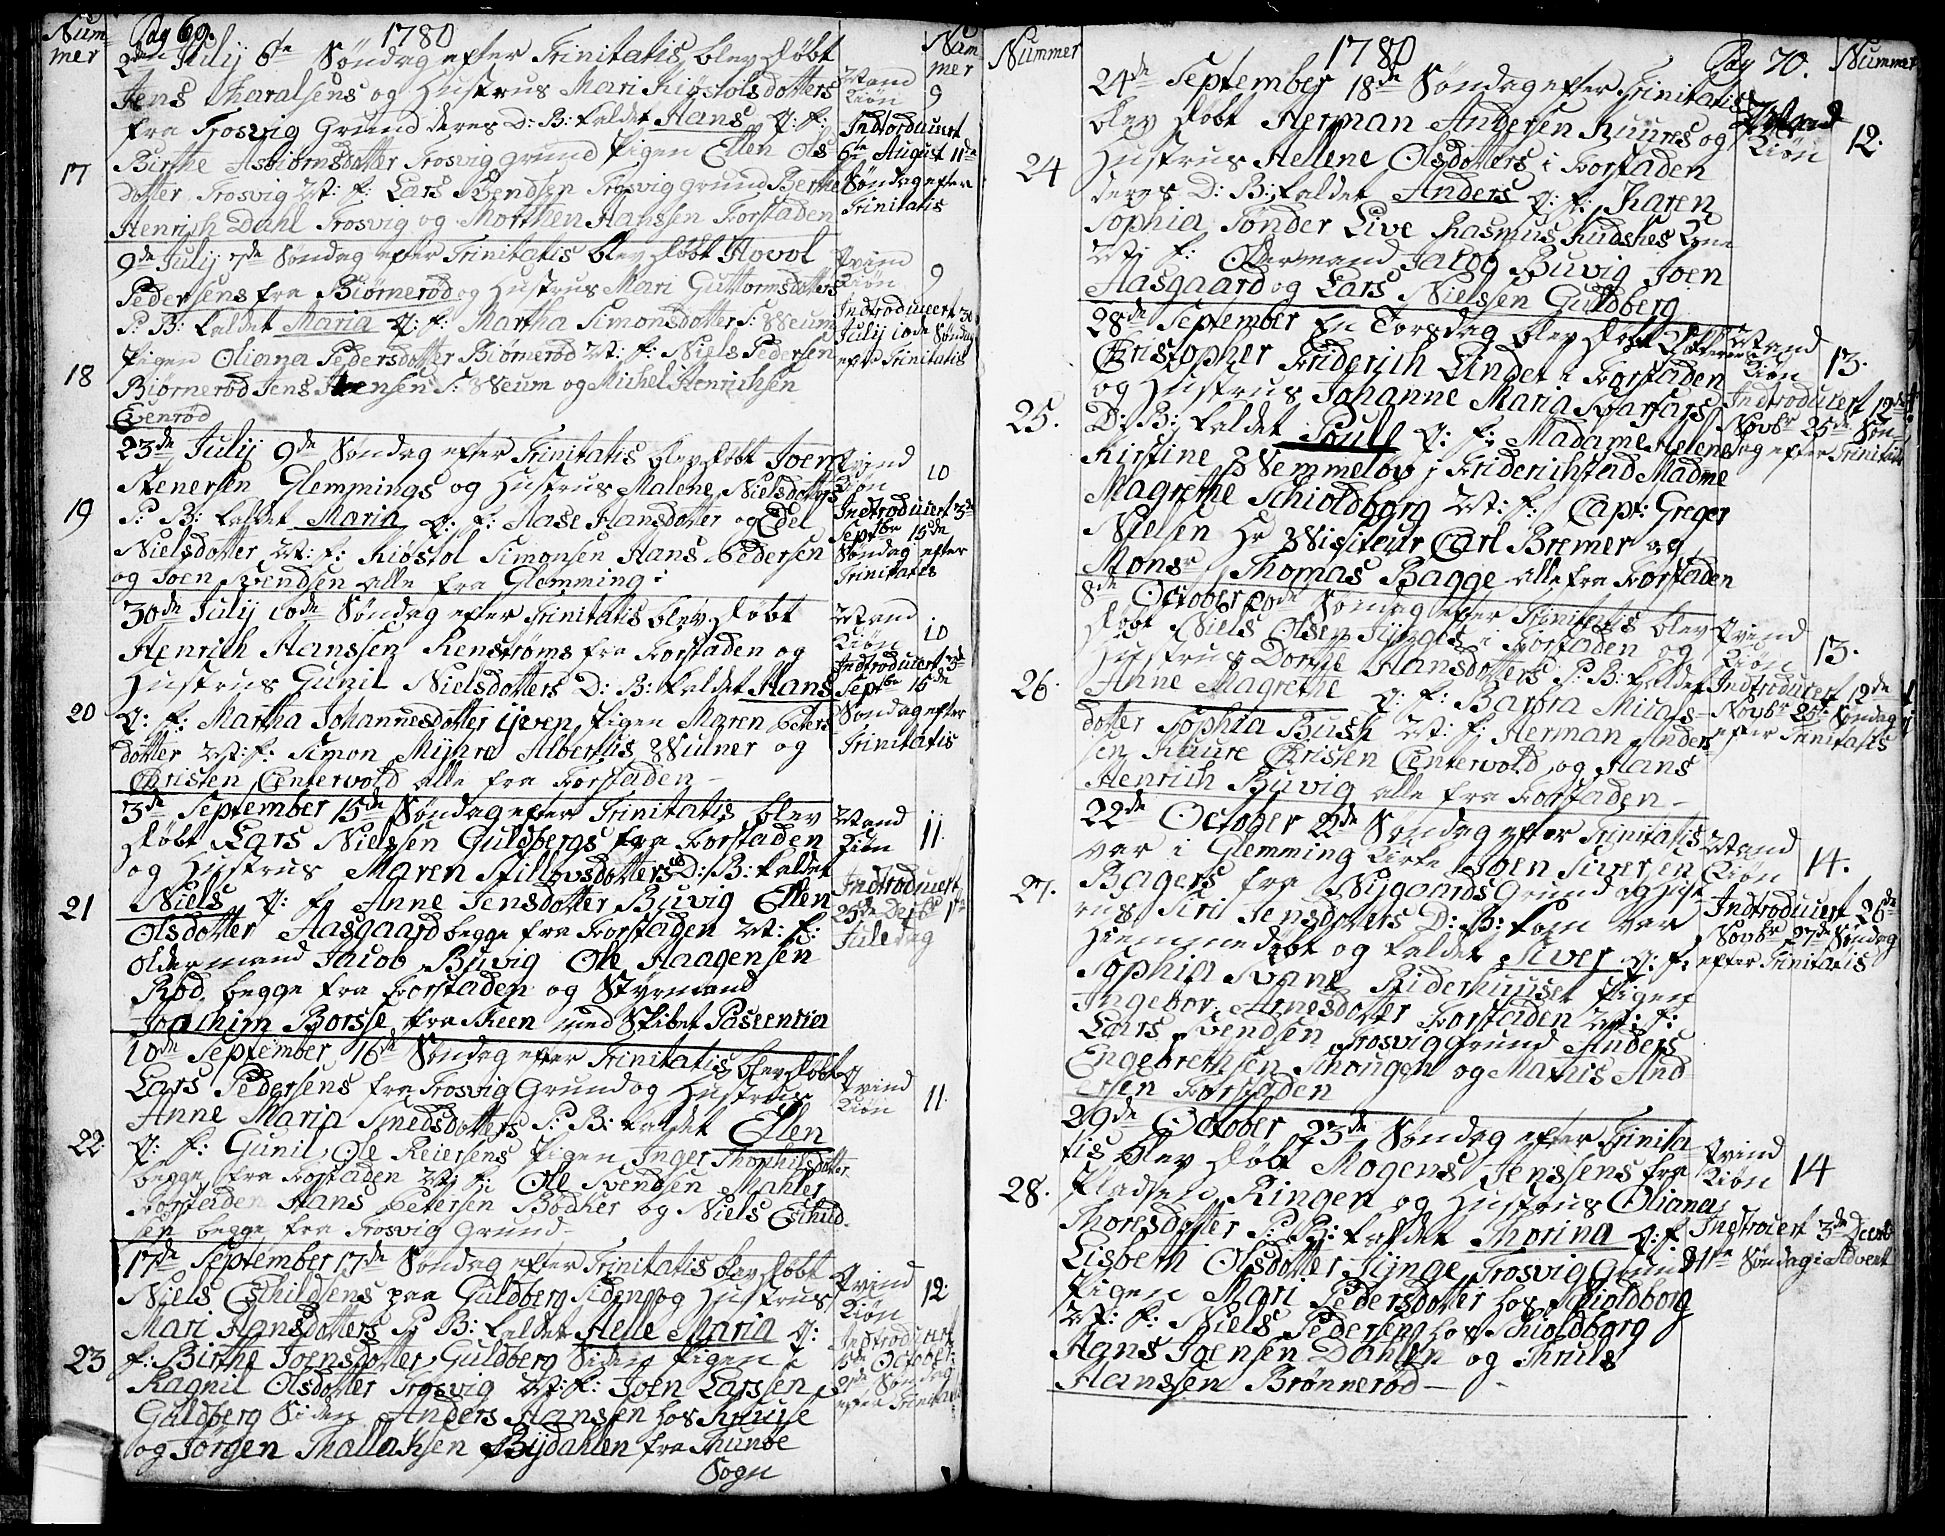 Num
mer
Pag 69.
1780
Num
mer
17
2den Julij 6te Søndag efter Trinitatis blev døbt
Jens Haralsens og Hustrus Mari Kiøstolsdotters
fra Trosvig Grund deres D: B: kaldet Hans Q: F:
Birthe Asbiørnsdotter Trosvig grund Pigen Ellen Ols
dotter Trosvig M: F: Lars Bendsen Trosvig grund Berthe
Henrich Dahl Trosvig og Morthen Hanssen Forstaden
Mand
Kiøn
9
Indtroduuert
6te August 11te
Søndag efter
Trinitatis
18
9de Julij 7de Søndag efter Trinitatis blev døbt Hovol
Pedersens fra Biørnerød og Hustrus Mari Guttormsdotters
P: B: kaldet Maria Q: F: Martha Simonsdotter S: Weum
Pigen Oliana Pedersdotter Biørnerød M: F: Niels Pedersen
Biørnerød Jens Jensen S: Weum og Michel Henrichsen
Evenrød
Qvind
Kiøn
9
Indtroducert 30
Julij 10de Søndag
efter Trinitatis
19
23de Julij 9de Søndag efter Trinitatis blev døbt Joen
Stenersen Glemmings og Hustrus Malene Nielsdotters
P: B: kaldet Maria Q: F: Aase Hansdotter og Edel
Nielsdotter M: F: Kiøstol Simonsen Hans Pedersen
og Joen Svendsen alle fra Glemming
Qvind
Kiøn
10
Indtroduciert 3de
Septbr 15de
Søndag efter
Trinitatis
20
30de Julij 10de Søndag efter Trinitatis blev døbt
Henrich Hanssen Renstrøms fra Forstaden og
Hustrus Gunil Nielsdotters D: B: kaldet Hans
Q: F: Martha Johannesdotter ijeven Pigen Maren Peters
dotter M: F: Simon Mimre Albertis Wulner og
Christen Centervold alle fra Forstaden
Mand
Kiøn
10
Indtroducert 3de
Septbr 15de
Søndag efter
Trinitatis
21
3de September 15de Søndag efter Trinitatis blev
døbt Lars Nielsen Guldbergs fra Forstaden
og Hustrus Maren Stillovsdotters D: B: kaldet
Niels Q: F: Anne Jensdotter Buvig Ellen
Olsdotter Aasgaard begge fra Forstaden M: F:
Oldermand Jacob Buvig Ole Haagensen
Rød begge fra Forstaden og Styrmand
Joachim Borsse fra Skeen med Skibet Pascentia
Mand
Kiøn
11
Indtroducert
25de Decbr 1ste
Juledag
22
10de September 16de Søndag efter Trinitatis blev døbt
Lars Pedersens fra Trosvig Grund og Hustrus
Anne Maria Smedsdotters P: B: kaldet Ellen
Q: F: Gunil Ole Reiersens Pigen Inger Thophilsdotter
begge fra Forstaden M: F: Ole Svendsen Mahler
Forstaden Hans Petersen Bødker og Niels Eschild
sen begge fra Trosvig Grund
Qvind
Kiøn
11
23
17de September 17de Søndag efter Trinitatis blev døbt
Niels Eschildsens paa Guldberg Siden og Hustrus
Mari Hansdotters P: B: kaldet Helle Maria Q:
F: Birthe Joensdotter Guldberg Siden Pigen
Ragnil Olsdotter Trosvig M: F: Joen Larssen
Guldberg Siden Anders Hansen hos Kruuse
og Jørgen Thallaksen Bijdahlen fra Thunøe
Sogn
Qvind
Kiøn
12
Indtroducert
15de October
21de Søndag
efter Trinitatis
Nummer
1780
Pag 70.
Nummer
24
24de September 18de Søndag efter Trinitatis
blev døbt Herman Andersen Kuures og
Hustrus Hellene Olsdotters i Forstaden
deres D: B: kaldet Anders Q: F: Karen
Sophia Tønder Live Rasmus Kudskes Kone
M: F: Oldermand Jacob Buvig Joen
Aasgaard og Lars Nielsen Guldberg
Mand
Kiøn
12.
25.
28de September En Torsdag blev døbt
Christopher Friderich Linde i Forstaden
og Hustrus Johanne Maria Svarsaas
D: B: kaldet Poull Q: F: Madame Helene
Kirstine Wemmelov i Friderichstad Madme
Magrethe Schioldborg M: F: Capt: Greger
Nielsen Hr Wisiteur Carl Bremer og
Monsr Thomas Bagge alle fra Forstaden
Mand
Kiøn
13.
Indtroducert 19de
Novbr 25de Søn-
dag efter Trinitatis
26.
8de October 20de Søndag efter Trinitatis blev
døbt Niels Olsen Kijnges i Forstaden og
Hustrus Dorthe Hansdotters P: B: kaldet
Anne Magrethe Q: F: Barbra Micals-
dotter Sophia Bush M: F: Herman Anders
sen Kuure Christen Centervold og Hans
Henrich Buvig alle fra Forstaden
Qvind
Kiøn
13.
Indtroducert 19de
Novbr 25de Søndag
efter Trinitatis
27.
22de October 22de Søndag efter Trinitatis
var i Glemming Kirke Joen Siversen
Bagers fra Nygaards Grund og Hust
rus Siri Jensdotters D: B: som var
Hiemmedøbt og kaldet Siver Q: F:
Sophia Svane Ridehuuset Pigen
Ingebor Arnesdotter Forstaden M: F:
Lars Svendsen Trosvig Grund Anders
Engebrethsen Schougen og Mathis And
ersen Forstaden
Mand
Kiøn
14.
Indtroducert 26de
Novbr 27de Søndag
efter Trinitatis
28.
29de October 23de Søndag efter Trinita
tis blev døbt Mogens Jenssens fra
Pladsen Ringen og Hustrus Oliana
Thoresdotter P: B: kaldet Thorina Q: F:
Lisbeth Olsdotter Kijnge Trosvig Grund
Pigen Mari Pedersdotter hos Schioldborg
M: F: Niels Pedersen hos Schioldborg
Hans Joensen Dahlen og Thruls
Hanssen Brønnerød
Qvind
Kiøn
14
Indtrocert 3de Decbr
1ste Søndag i Advent